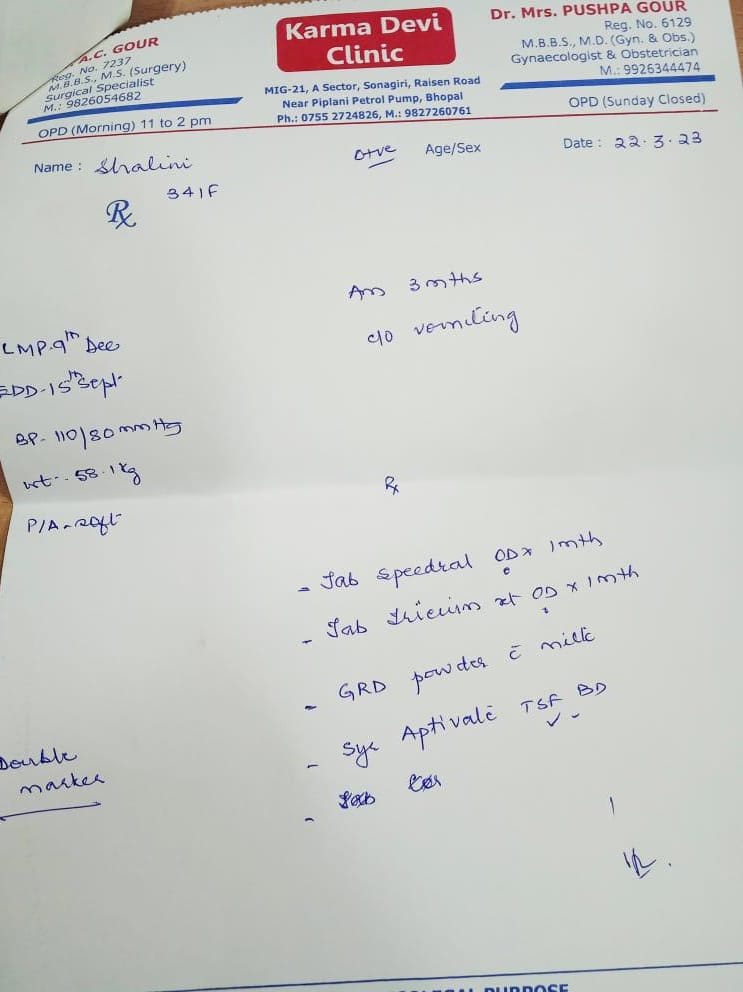 A.C. GOUR
Reg. No. 7237
M.B.B.S., M.S. (Surgery)
Surgical Specialist
M.: 9826054682
OPD (Morning) 11 to 2 pm
Karma Devi
Clinic
MIG-21, A Sector, Sonagiri, Raisen Road
Near Piplani Petrol Pump, Bhopal
Ph.: 0755 2724826, M.: 9827260761
Dr. Mrs. PUSHPA GOUR
Reg. No. 6129
M.B.B.S., M.D. (Gyn. & Obs.)
Gynaecologist & Obstetrician
M.: 9926344474
OPD (Sunday Closed)
Name : Shalini O+ve Age/Sex Date : 22.3.23
Rx 34/F
3 mths
c/o vomiting
LMP-9th Dec
EDD-15th Sept
BP- 110/80 mmHg
wt- 58.1 kg
P/A - soft
Rx
- Tab Speedral OD x 1 mth
- Tab xt OD x 1 mth
- GRD powder c̄ milk
- Syr Aptivate TSF BD
Double
marker
PURPOSE